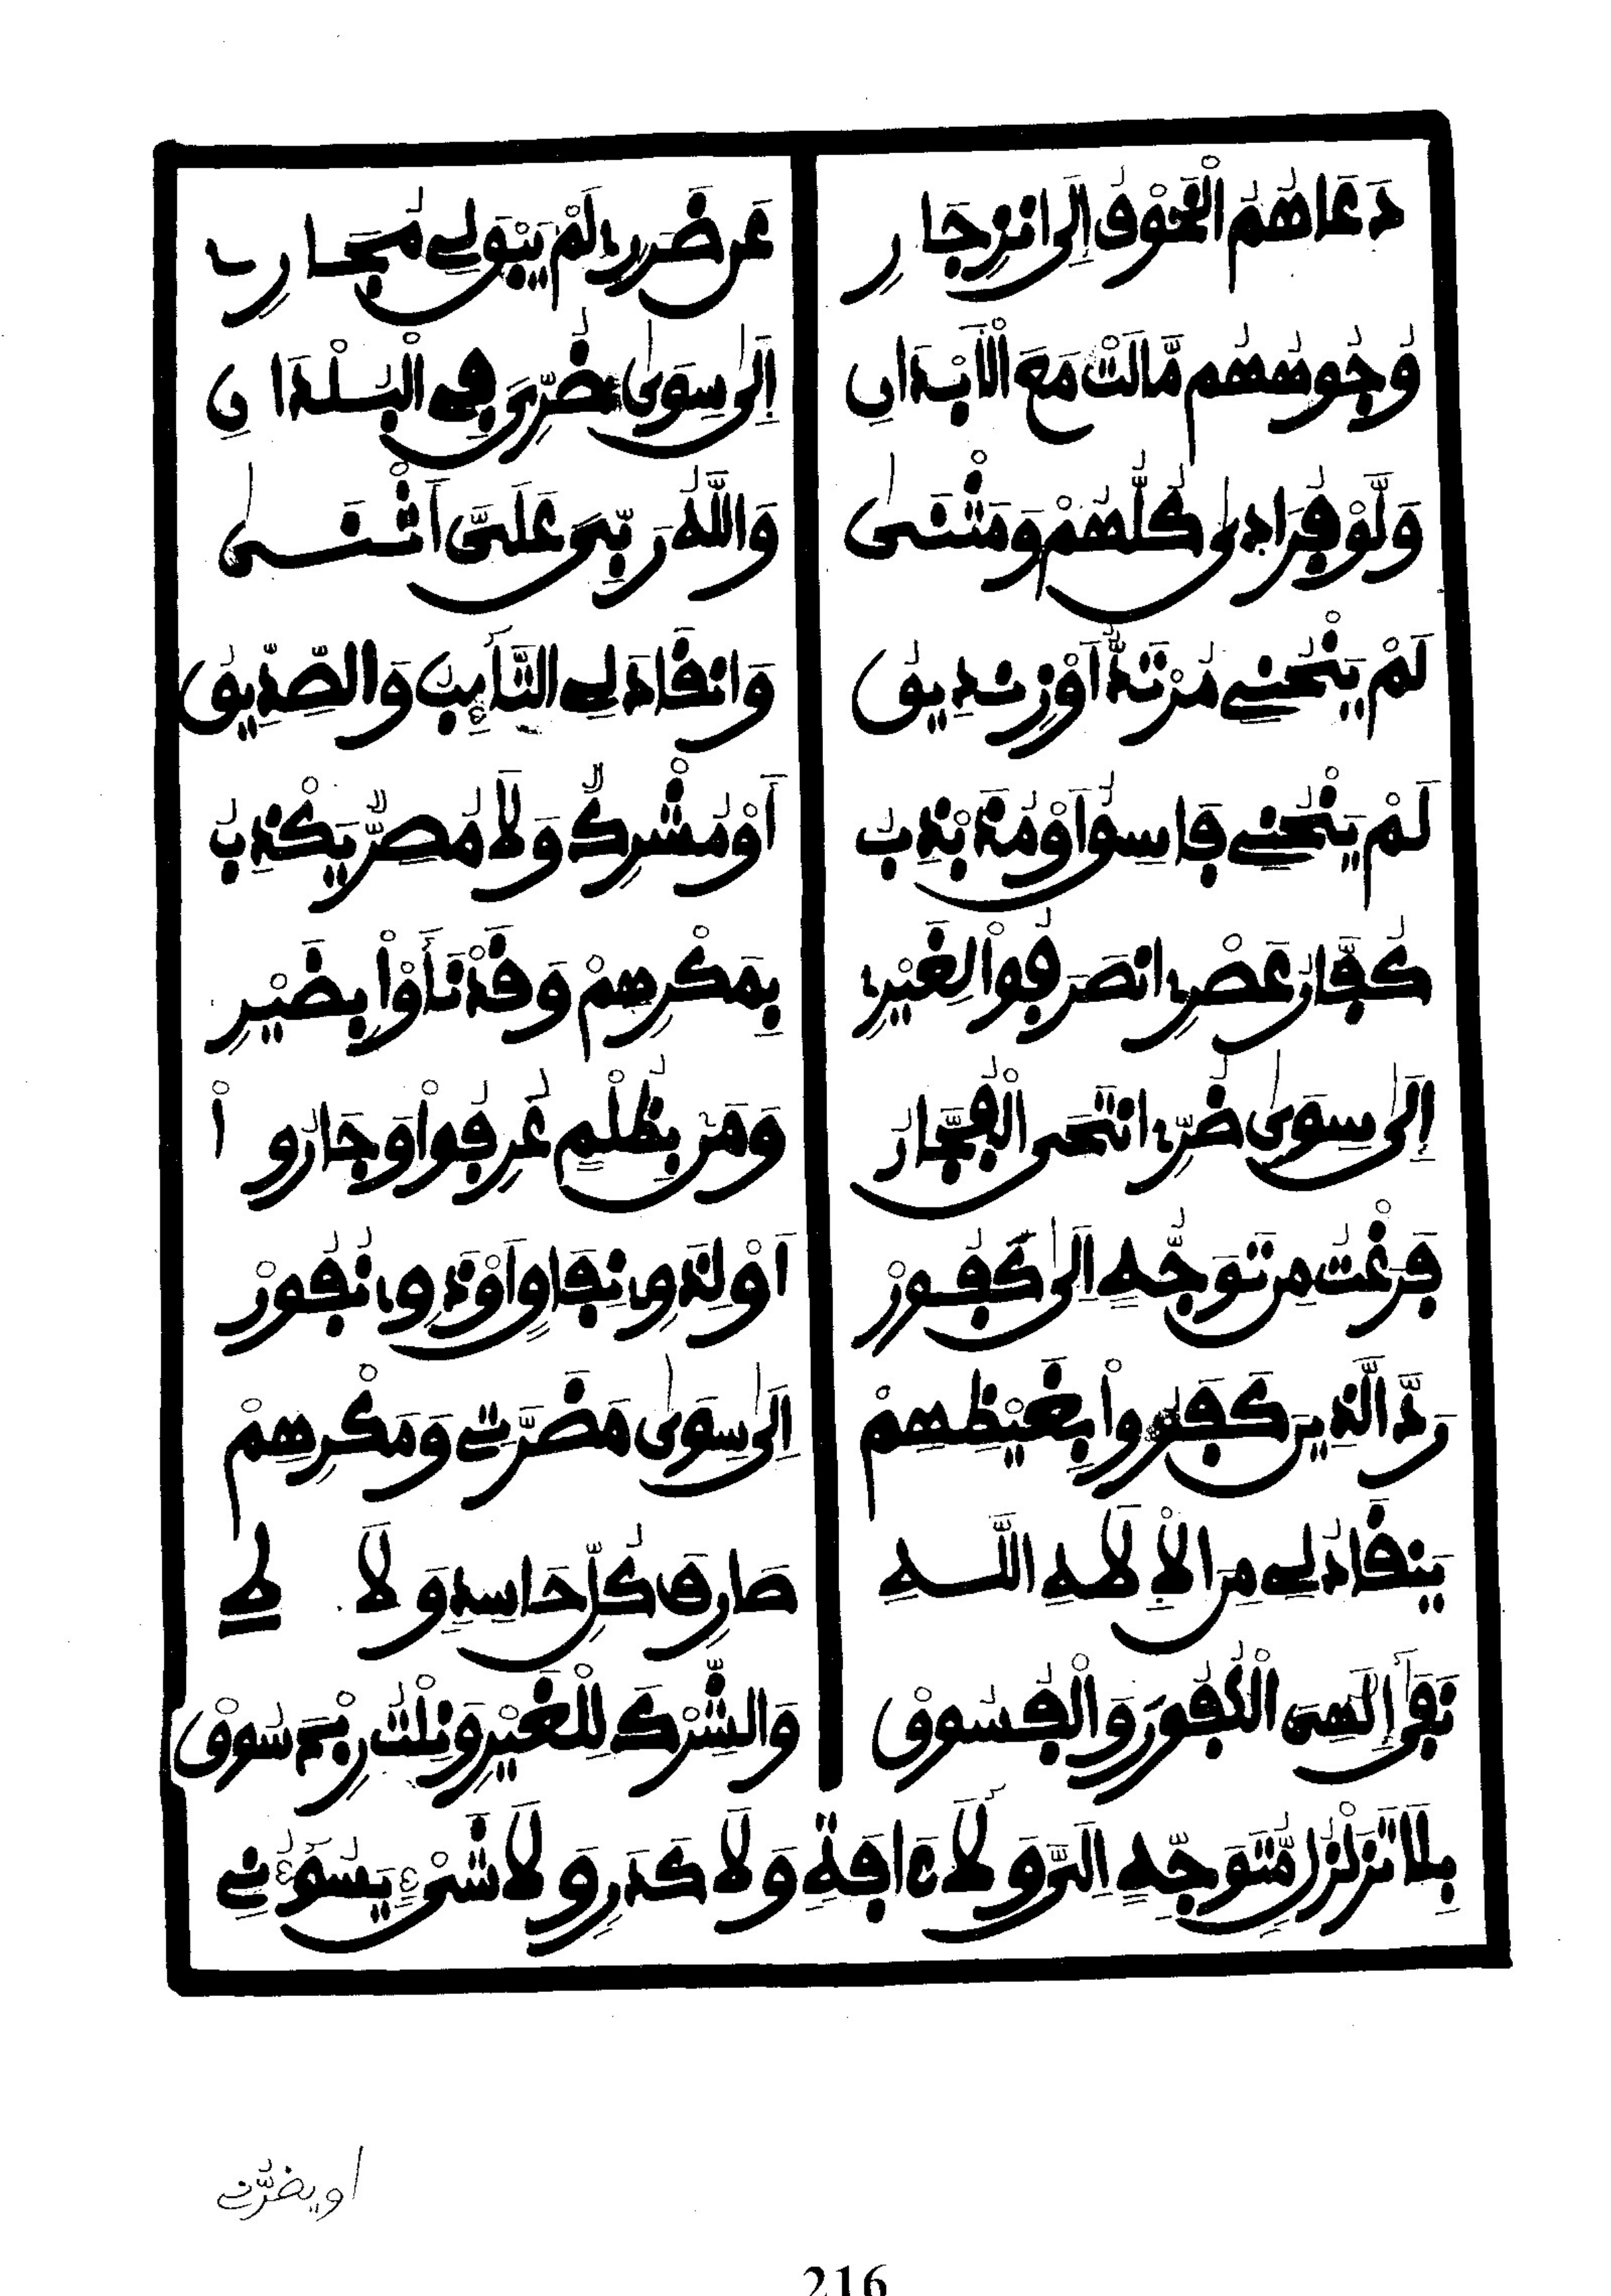 دَعَاهُمُ الْخَوْفُ إِلَى انْزِجَارِ عَن ضَرَرٍ لَمْ يَبْوَ لِي مُجَارِ
وُجُوهُهُم مَّالَتْ مَعَ الْأَبْدَانِ إِلَىٰ سِوَىٰ ضُرِّيَ فِي الْبُلْدَانِ
وَلَّوْا فُرَادَىٰ كُلُّهُمْ وَمَثْنَىٰ وَاللَّهُ رَبِّيَ عَلَىَّ أَثْنَىٰ
لَمْ يَنْحُنِي مُرْتَدٌّ أَوْ زِنْدِيقُ وَانْقَادَ لِي التَّائِبُ وَالصِّدِّيقُ
لَمْ يَنْحُنِي فَاسِقٌ أَوْ مُذَبْذِبُ أَوْ مُشْرِكٌ وَلَا مُصِرٌّ يَكْذِبُ
كُفَّارُ عَصْرِي انْصَرَفُواْ لِغَيْرِي بِمَكْرِهِمْ وَقَدْ نَأَوْاْ بِضَيْرِ
إِلَىٰ سِوَىٰ ضُرِّي انْتَحَى الْفُجَّارُ وَمَنْ بِظُلْمٍ عُرِفُواْ وَجَارُواْ
فَرَغْتُ مِن تَوَجُّهٍ إِلَىٰ كَفُورْ أَوْ لِذَوِي نِفَاقٍ أَوْ ذَوِي نُفُورْ
رَدَّ الَّذِينَ كَفَرُواْ بِغَيْظِهِمْ إِلَىٰ سِوَىٰ مَضَرَّتِي وَمَكْرِهِمْ
يَنقَادُ لِي مِنَ الْإِلَٰهِ اللَّهِ صَارِفُ كُلِّ حَاسِدٍ وَلَا لِي
نَفَىٰ إِلَٰهِىَ الْكُفُورَ وَالْفُسُوقْ وَالشِّرْكَ لِلْغَيْرِ وَنِلْتُ رِبْحَ سُوقْ
بِلَا تَزَلْزُلٍ مُّتَوَجِّهٍ إِلَىَّ وَلَا ءَافَةٍ وَلَا كَدَرٍ وَلَا شَىْءٍ يَسُوءُنِي
او يضرُّني
216